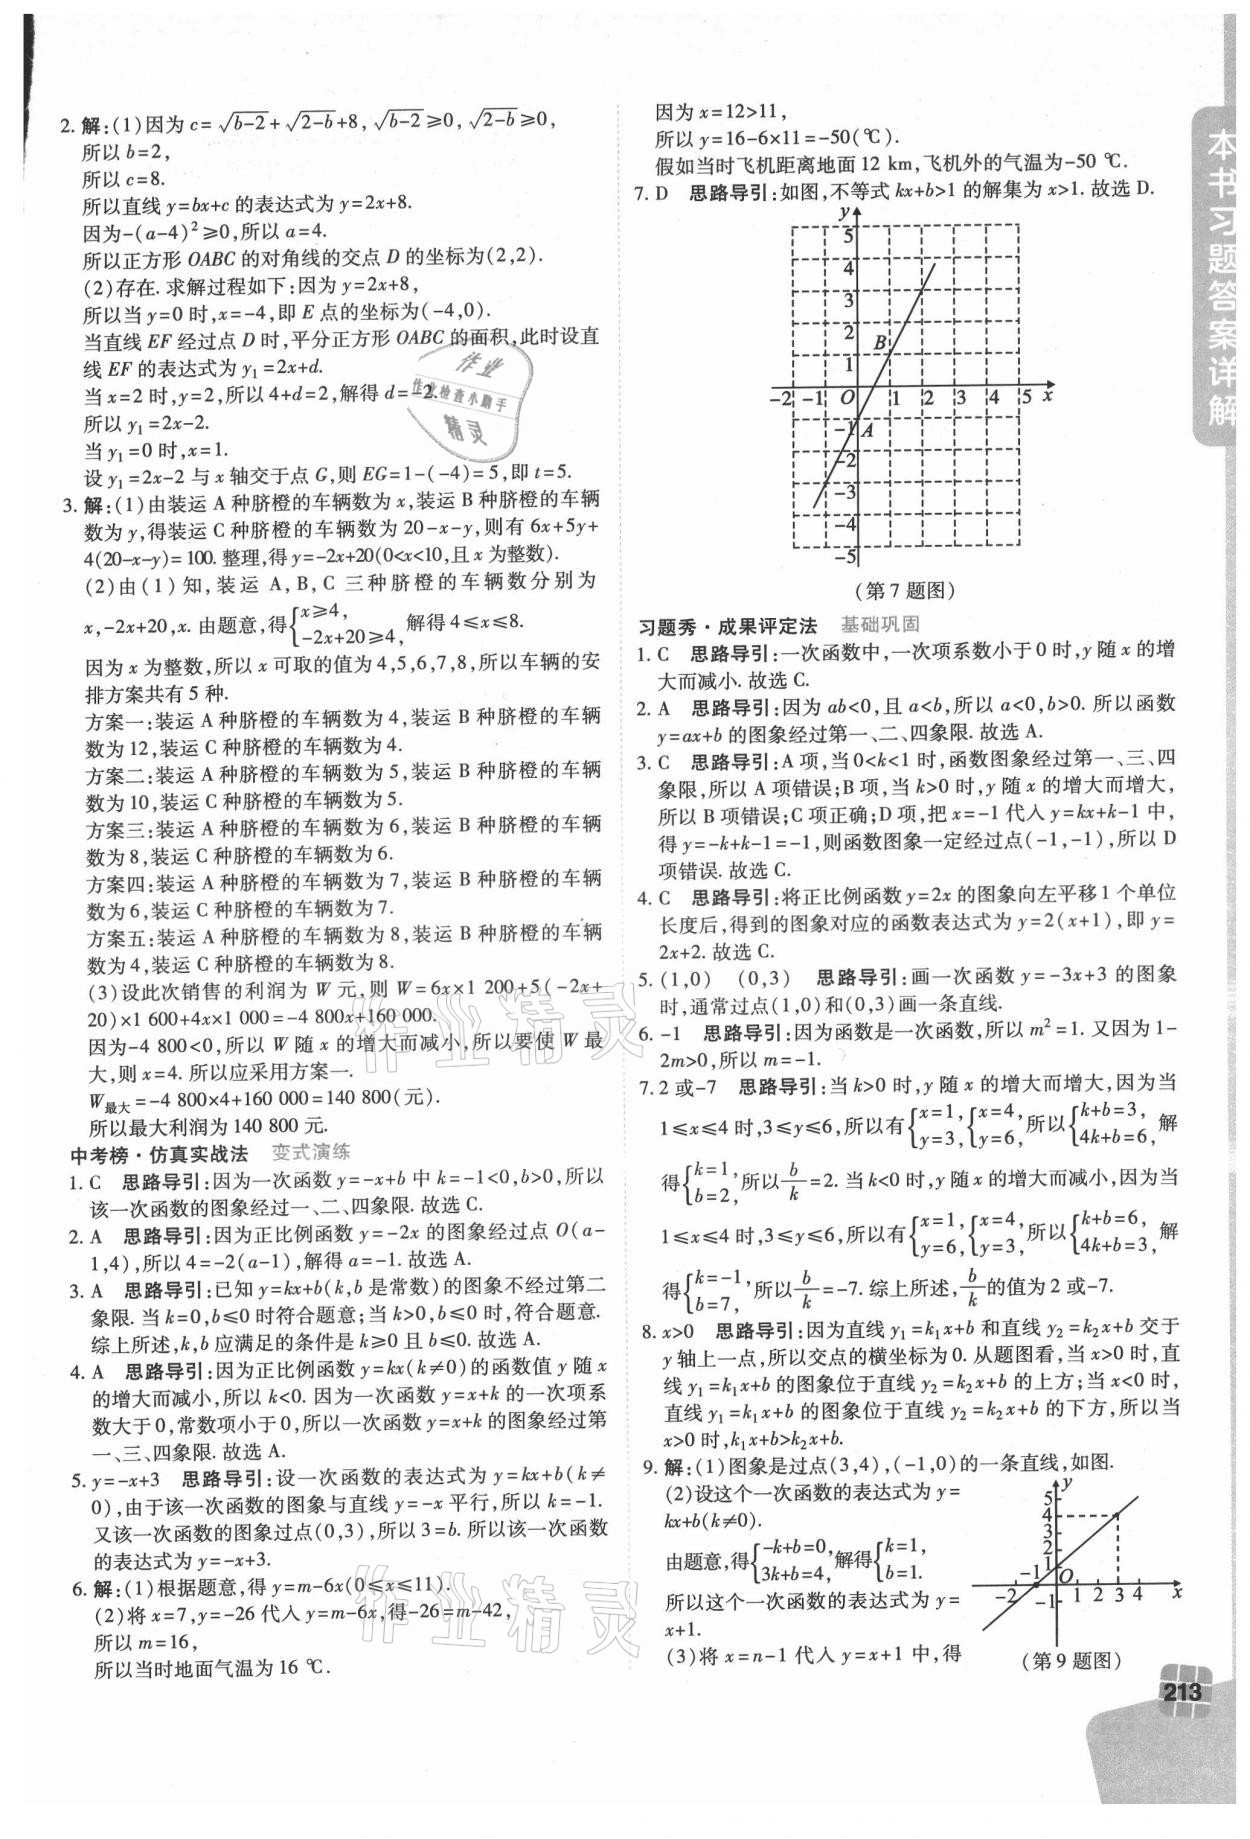 2. 解:(1)因为 c=√(b-2)+√(2-b)+8, √(b-2)≥0, √(2-b)≥0,
所以 b=2,
所以 c=8.
所以直线 y=bx+c 的表达式为 y=2x+8.
因为-(a-4)²≥0,所以 a=4.
所以正方形 OABC 的对角线的交点 D 的坐标为(2,2).
(2)存在. 求解过程如下:因为 y=2x+8,
所以当 y=0 时,x=-4,即 E 点的坐标为(-4,0).
当直线 EF 经过点 D 时,平分正方形 OABC 的面积,此时设直
线 EF 的表达式为 y₁=2x+d.
当 x=2 时,y=2,所以 4+d=2,解得 d=-2.
所以 y₁=2x-2.
当 y₁=0 时,x=1.
设 y₁=2x-2 与 x 轴交于点 G,则 EG=1-(-4)=5,即 t=5.
3. 解:(1)由装运 A 种脐橙的车辆数为 x,装运 B 种脐橙的车辆
数为 y,得装运 C 种脐橙的车辆数为 20-x-y,则有 6x+5y+
4(20-x-y)=100. 整理,得 y=-2x+20(0<x<10,且 x 为整数).
(2)由(1)知,装运 A,B,C 三种脐橙的车辆数分别为
x,-2x+20,x. 由题意,得{x≥4, -2x+20≥4, 解得 4≤x≤8.
因为 x 为整数,所以 x 可取的值为 4,5,6,7,8,所以车辆的安
排方案共有 5 种.
方案一:装运 A 种脐橙的车辆数为 4,装运 B 种脐橙的车辆
数为 12,装运 C 种脐橙的车辆数为 4.
方案二:装运 A 种脐橙的车辆数为 5,装运 B 种脐橙的车辆
数为 10,装运 C 种脐橙的车辆数为 5.
方案三:装运 A 种脐橙的车辆数为 6,装运 B 种脐橙的车辆
数为 8,装运 C 种脐橙的车辆数为 6.
方案四:装运 A 种脐橙的车辆数为 7,装运 B 种脐橙的车辆
数为 6,装运 C 种脐橙的车辆数为 7.
方案五:装运 A 种脐橙的车辆数为 8,装运 B 种脐橙的车辆
数为 4,装运 C 种脐橙的车辆数为 8.
(3)设此次销售的利润为 W 元,则 W=6x×1 200+5(-2x+
20)×1 600+4x×1 000=-4 800x+160 000.
因为-4 800<0,所以 W 随 x 的增大而减小,所以要使 W 最
大,则 x=4. 所以应采用方案一.
W最大=-4 800×4+160 000=140 800(元).
所以最大利润为 140 800 元.
中考榜·仿真实战法 变式演练
1. C 思路导引:因为一次函数 y=-x+b 中 k=-1<0,b>0,所以
该一次函数的图象经过一、二、四象限. 故选 C.
2. A 思路导引:因为正比例函数 y=-2x 的图象经过点 O(a-
1,4),所以 4=-2(a-1),解得 a=-1. 故选 A.
3. A 思路导引:已知 y=kx+b(k,b 是常数)的图象不经过第二
象限. 当 k=0,b≤0 时符合题意;当 k>0,b≤0 时,符合题意.
综上所述,k,b 应满足的条件是 k≥0 且 b≤0. 故选 A.
4. A 思路导引:因为正比例函数 y=kx(k≠0)的函数值 y 随 x
的增大而减小,所以 k<0. 因为一次函数 y=x+k 的一次项系
数大于 0,常数项小于 0,所以一次函数 y=x+k 的图象经过第
一、三、四象限. 故选 A.
5. y=-x+3 思路导引:设一次函数的表达式为 y=kx+b(k≠
0),由于该一次函数的图象与直线 y=-x 平行,所以 k=-1.
又该一次函数的图象过点(0,3),所以 3=b. 所以该一次函数
的表达式为 y=-x+3.
6. 解:(1)根据题意,得 y=m-6x(0≤x≤11).
(2)将 x=7,y=-26 代入 y=m-6x,得-26=m-42,
所以 m=16,
所以当时地面气温为 16 ℃.
因为 x=12>11,
所以 y=16-6×11=-50(℃).
假如当时飞机距离地面 12 km,飞机外的气温为-50 ℃.
7. D 思路导引:如图,不等式 kx+b>1 的解集为 x>1. 故选 D.
y
5
4
3
2
B
1
-2 -1 O 1 2 3 4 5 x
-1 A
-2
-3
-4
-5
(第 7 题图)
习题秀·成果评定法 基础巩固
1. C 思路导引:一次函数中,一次项系数小于 0 时,y 随 x 的增
大而减小. 故选 C.
2. A 思路导引:因为 ab<0,且 a<b,所以 a<0,b>0. 所以函数
y=ax+b 的图象经过第一、二、四象限. 故选 A.
3. C 思路导引:A 项,当 0<k<1 时,函数图象经过第一、三、四
象限,所以 A 项错误;B 项,当 k>0 时,y 随 x 的增大而增大,
所以 B 项错误;C 项正确;D 项,把 x=-1 代入 y=kx+k-1 中,
得 y=-k+k-1=-1,则函数图象一定经过点(-1,-1),所以 D
项错误. 故选 C.
4. C 思路导引:将正比例函数 y=2x 的图象向左平移 1 个单位
长度后,得到的图象对应的函数表达式为 y=2(x+1),即 y=
2x+2. 故选 C.
5. (1,0) (0,3) 思路导引:画一次函数 y=-3x+3 的图象
时,通常过点(1,0)和(0,3)画一条直线.
6. -1 思路导引:因为函数是一次函数,所以 m²=1. 又因为 1-
2m>0,所以 m=-1.
7. 2 或-7 思路导引:当 k>0 时,y 随 x 的增大而增大,因为当
1≤x≤4 时,3≤y≤6,所以有{x=1, y=3, {x=4, y=6, 所以{k+b=3, 4k+b=6, 解
得{k=1, b=2, 所以b/k=2. 当 k<0 时,y 随 x 的增大而减小,因为当
1≤x≤4 时,3≤y≤6,所以有{x=1, y=6, {x=4, y=3, 所以{k+b=6, 4k+b=3, 解
得{k=-1, b=7, 所以b/k=-7. 综上所述,b/k的值为 2 或-7.
8. x>0 思路导引:因为直线 y₁=k₁x+b 和直线 y₂=k₂x+b 交于
y 轴上一点,所以交点的横坐标为 0. 从题图看,当 x>0 时,直
线 y₁=k₁x+b 的图象位于直线 y₂=k₂x+b 的上方;当 x<0 时,
直线 y₁=k₁x+b 的图象位于直线 y₂=k₂x+b 的下方,所以当
x>0 时,k₁x+b>k₂x+b.
9. 解:(1)图象是过点(3,4),(-1,0)的一条直线,如图.
(2)设这个一次函数的表达式为 y=
kx+b(k≠0).
由题意,得{-k+b=0, 3k+b=4, 解得{k=1, b=1.
所以这个一次函数的表达式为 y=
x+1.
(3)将 x=n-1 代入 y=x+1 中,得
y
5
4
3
2
1
-2 -1 O 1 2 3 4 x
-1
(第 9 题图)
本书习题答案详解
213
作业
作业检查小助手
精灵
作业精灵
作业精灵